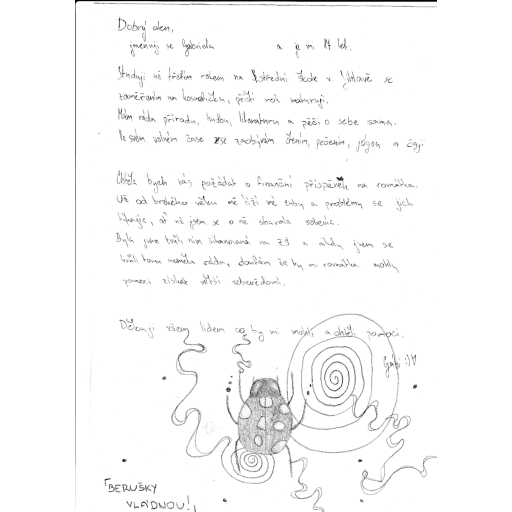 Dobrý den,
jmenuji se Gabriela a je mi 17 let.
Studuji už třetím rokem na střední škole v Jihlavě se
zaměřením na kosmetičku, příští rok maturuji.
Mám ráda přírodu, hudbu, literaturu a péči o sebe sama.
Ve svém volném čase se zaobývám čtením, pečením, jógou a čaji
Chtěla bych vás požádat o finanční příspěvek na rovnátka.
Už od brzkého věku mě tíží mé zuby a problémy se jich
týkajíc, ať už jsem se o ně starala sebevíc.
Byla jsem kvůli nim šikanovaná na ZŠ a nikdy jsem se
kvůli tomu neměla ráda, doufám že by mi rovnátka mohly
pomoci získat větší sebevědomí.
Děkuji všem lidem co by mi mohli a chtěli pomoci.
Gabi :)
BERUŠKY
VLÁDNOU!